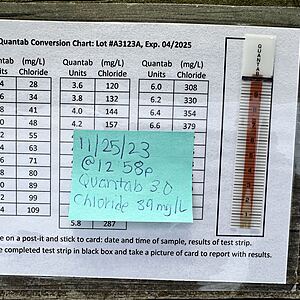 Quantab Conversion Chart: Lot #A3123A, Exp. 04/2025
(mg/L) Quantab (mg/L) Quantab (mg/L)
Chloride Units Chloride Units Chloride
28 3.6 120 6.0 308
34 3.8 132 6.2 330
41 4.0 144 6.4 354
48 4.2 157 6.6 379
55
63
71
80
89
99
109 5.8 287
11/25/23
@12 58p
Quantab 3.0
Chloride 89 mg/L
e on a post-it and stick to card: date and time of sample, results of test strip.
e completed test strip in black box and take a picture of card to report with results.
QUANTAB